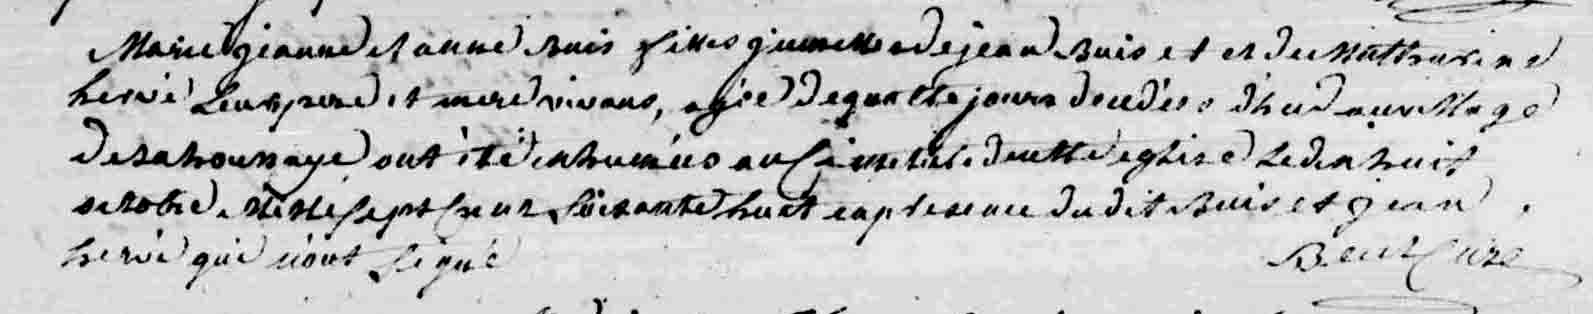 Marie jeanne et anne Buis filles jumelles de jean Buis et et de Mathurine
hervé Leurs pere et mere vivans, agée de quattre jours decedées d'hier au village
de la houssaye ont été inhumées au Cimetiere de cette eglise Le dix huit
octobre mille sept Cent Soixante huit en presence du dit Buis et jean
hervé qui n'ont Signé
Curé